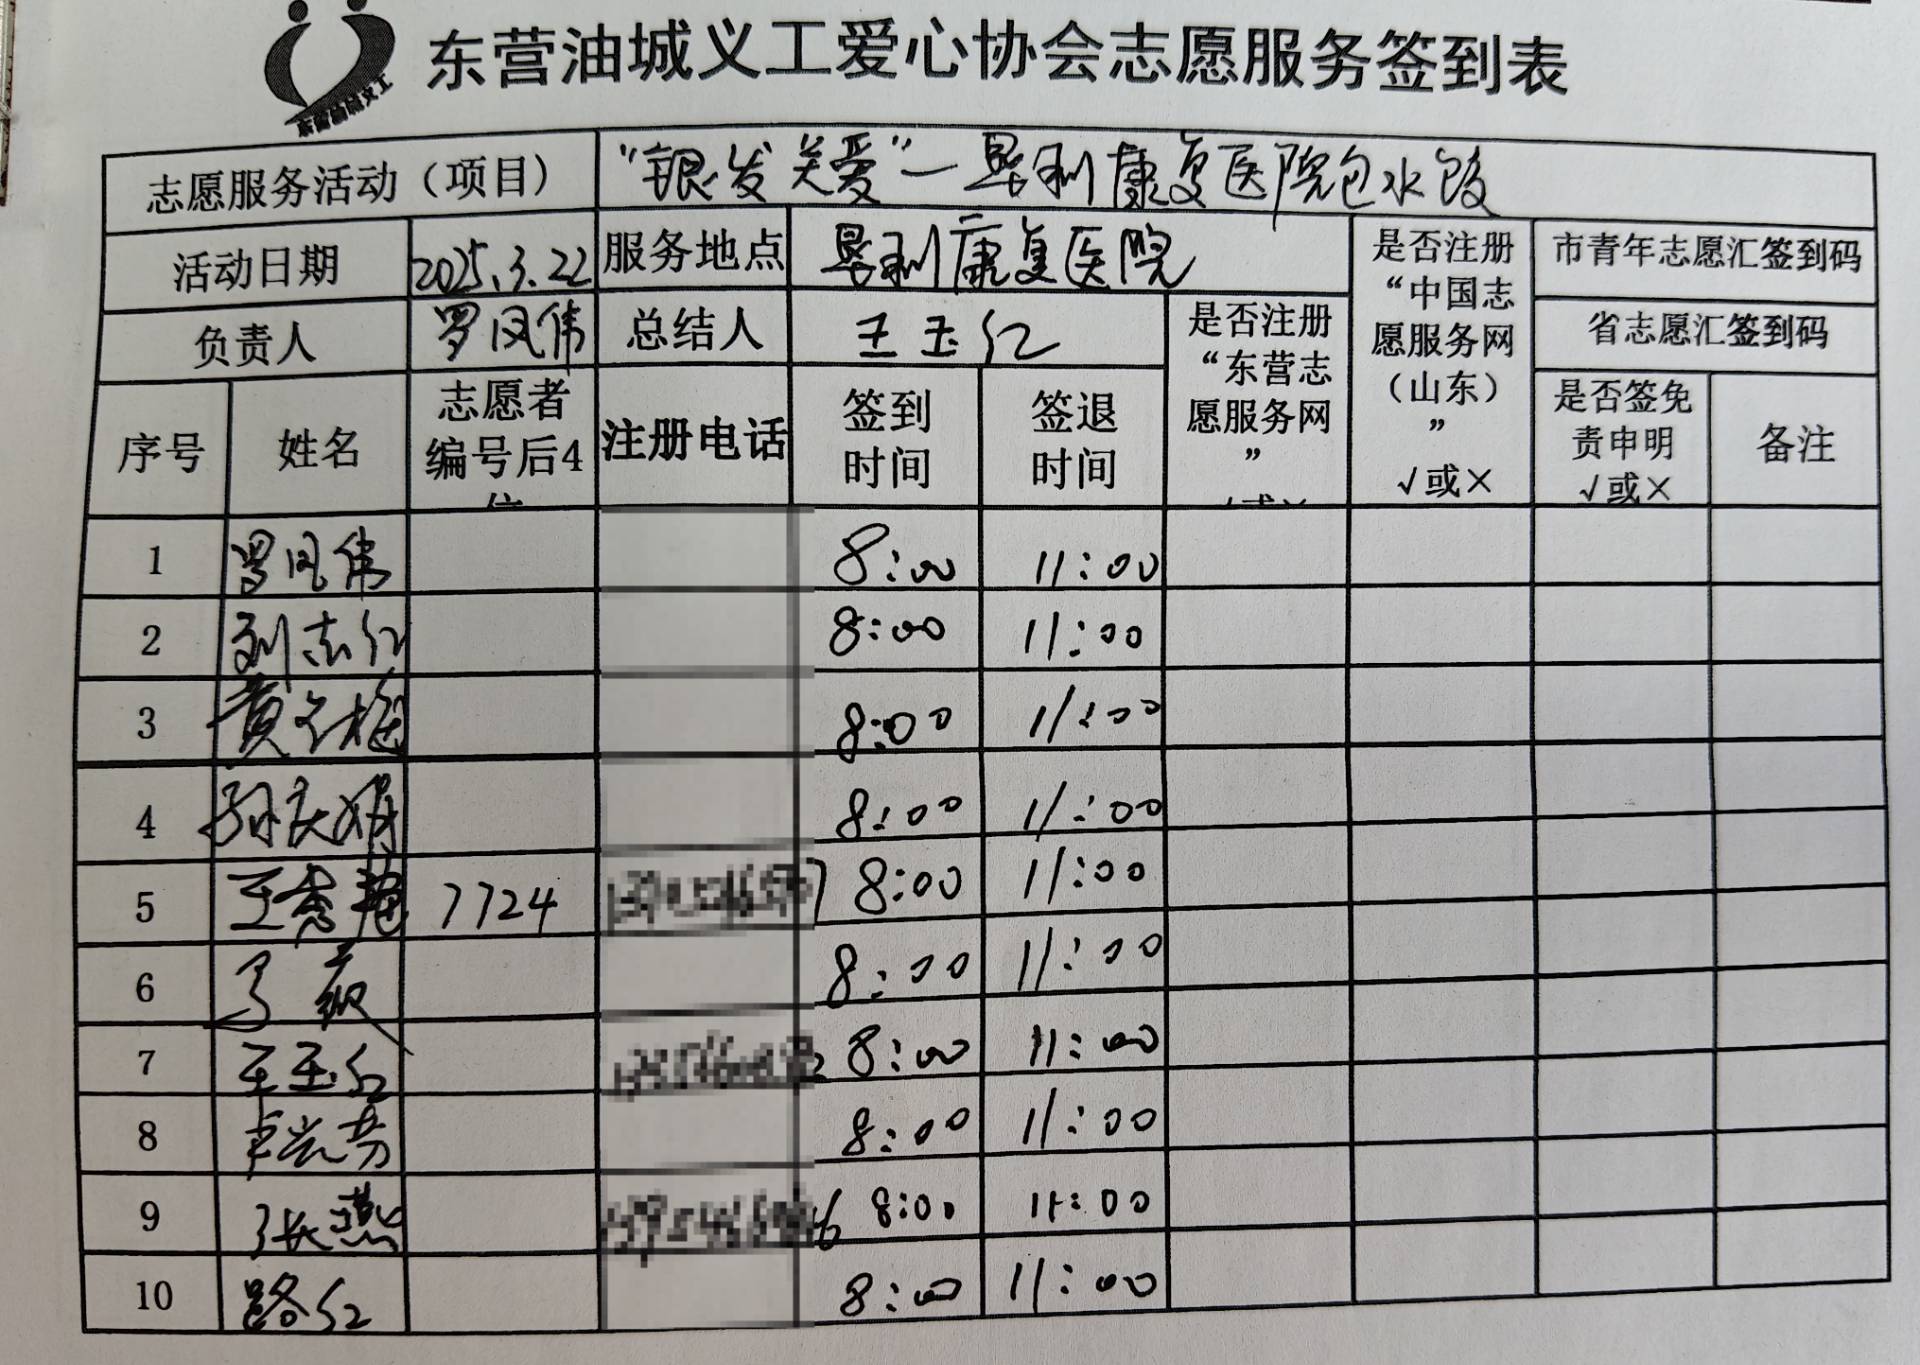 东营油城义工
东营油城义工爱心协会志愿服务签到表
志愿服务活动（项目） “银发关爱”一垦利康复医院包水饺
活动日期 2025.3.22 服务地点 垦利康复医院 是否注册“中国志愿服务网（山东）” √或× 市青年志愿汇签到码
省志愿汇签到码
负责人 罗凤伟 总结人 王玉红 是否注册“东营志愿服务网”
序号 姓名 志愿者编号后4位 注册电话 签到时间 签退时间 是否签免责申明 √或× 备注
1 罗凤伟 8:00 11:00
2 刘志红 8:00 11:00
3 黄 梅 8:00 11:00
4 孙庆娟 8:00 11:00
5 王秀艳 7724 8:00 11:00
6 8:00 11:00
7 王玉红 8:00 11:00
8 8:00 11:00
9 张燕 8:00 11:00
10 路红 8:00 11:00